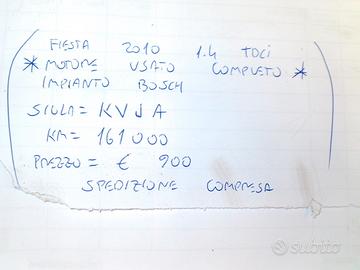 FIESTA 2010 1.4 TDCI
* MOTORE USATO COMPLETO *
IMPIANTO BOSCH
SIGLA = KVJA
KM = 161000
PREZZO = € 900
SPEDIZIONE COMPRESA
subito